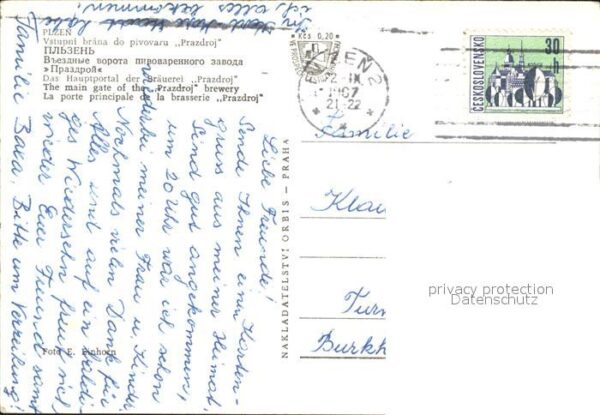 PLZEŇ
Vstupní brána do pivovaru „Prazdroj"
ПЛЬЗЕНЬ
Въездные ворота пивоваренного завода
»Праздрой«
Das Hauptportal der Bräuerei „Prazdroj"
The main gate of the „Prazdroj" brewery
La porte principale de la brasserie „Prazdroj"
Kčs 0,20
PLZEŇ 2
21-22
ČESKOSLOVENSKO
30 h
Familie
Klau
Turn
Burkh
privacy protection
Datenschutz
NAKLADATELSTVÍ ORBIS - PRAHA
Foto E. Einhorn
Liebe Freunde!
Sende Ihnen einen Karten-
gruss aus meiner Heimat.
Sind gut angekommen,
um 20 Uhr war ich schon
wieder bei meiner Frau u. Kinder.
Nochmals vielen Dank für
Alles und auf ein baldi-
ges Wiedersehn freut sich
wieder Euer Freund samt
Familie Baxa Bitte um Verzeihung!
ich alles